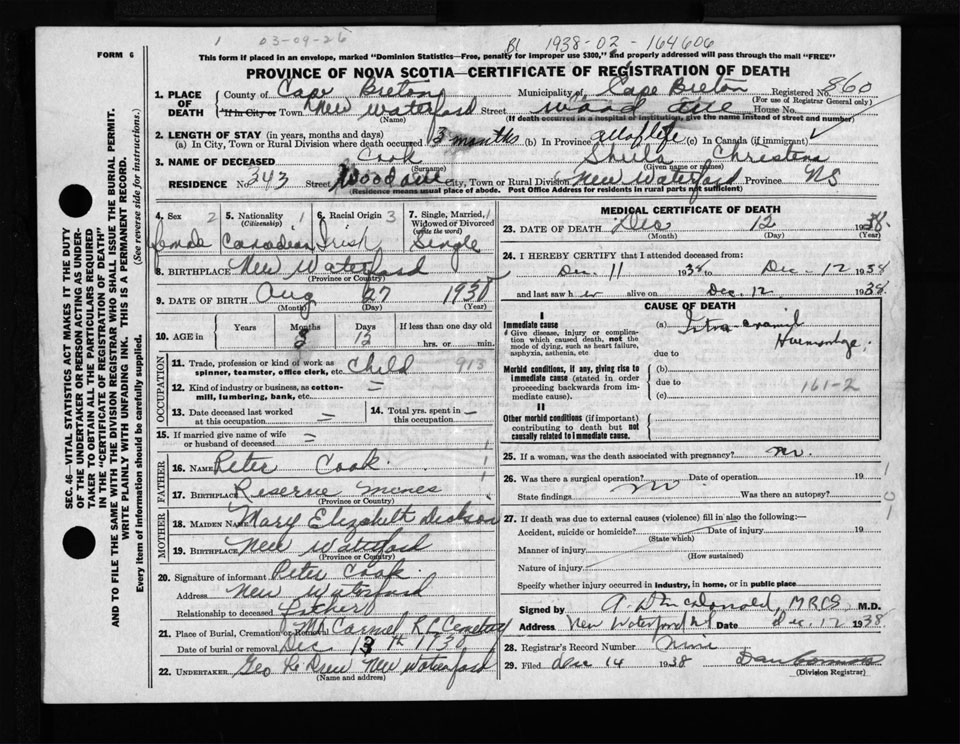 1 03-09-26 Bl 1938-02-164606
FORM 6
This form if placed in an envelope, marked "Dominion Statistics—Free, penalty for improper use $300," and properly addressed will pass through the mail "FREE"
PROVINCE OF NOVA SCOTIA—CERTIFICATE OF REGISTRATION OF DEATH
SEC. 46—VITAL STATISTICS ACT MAKES IT THE DUTY
OF THE UNDERTAKER OR PERSON ACTING AS UNDER-
TAKER TO OBTAIN ALL THE PARTICULARS REQUIRED
IN THE "CERTIFICATE OF REGISTRATION OF DEATH"
AND TO FILE THE SAME WITH THE DIVISION REGISTRAR WHO SHALL ISSUE THE BURIAL PERMIT.
WRITE PLAINLY WITH UNFADING INK. THIS IS A PERMANENT RECORD.
Every item of information should be carefully supplied. (See reverse side for instructions.)
1. PLACE OF DEATH County of Cape Breton Municipality of Cape Breton Registered No. 860
(For use of Registrar General only)
"If in City or Town New Waterford Street Wood ave House No.
(Name) (If death occurred in a hospital or institution, give the name instead of street and number)
2. LENGTH OF STAY (in years, months and days)
(a) In City, Town or Rural Division where death occurred 3 months (b) In Province all of life (c) In Canada (if immigrant)
3. NAME OF DECEASED Cook Sheila Christena
(Surname) (Given name or names)
RESIDENCE No 343 Street Wood ave City, Town or Rural Division New Waterford Province NS
(Residence means usual place of abode. Post Office Address for residents in rural parts not sufficient)
4. Sex 2 5. Nationality (Citizenship) 1 6. Racial Origin 3 7. Single, Married, Widowed or Divorced (write the word)
female Canadian Irish Single
8. BIRTHPLACE New Waterford
(Province or Country)
9. DATE OF BIRTH Aug 27 1938
(Month) (Day) (Year)
10. AGE in Years Months Days If less than one day old
3 12 hrs. or min.
OCCUPATION
11. Trade, profession or kind of work as spinner, teamster, office clerk, etc. Child 913
12. Kind of industry or business, as cotton-mill, lumbering, bank, etc. =
13. Date deceased last worked at this occupation = 14. Total yrs. spent in this occupation —
15. If married give name of wife or husband of deceased =
FATHER
16. NAME Peter Cook
17. Birthplace Reserve Mines
(Province or Country)
MOTHER
18. MAIDEN NAME Mary Elizabeth Dickson
19. BIRTHPLACE New Waterford
(Province or Country)
20. Signature of informant Peter Cook
Address New Waterford
Relationship to deceased father
21. Place of Burial, Cremation or Removal Mt Carmel R C Cemetery
Date of burial or removal Dec 13th 1938
22. UNDERTAKER Geo New Waterford
(Name and address)
MEDICAL CERTIFICATE OF DEATH
23. DATE OF DEATH Dec 12 1938
(Month) (Day) (Year)
24. I HEREBY CERTIFY that I attended deceased from:
Dec. 11 1938 to Dec-12 1938
and last saw her alive on Dec. 12 1938
CAUSE OF DEATH
I
Immediate cause
Give disease, injury or complication which caused death, not the mode of dying, such as heart failure, asphyxia, asthenia, etc
(a) Intra-cranial Haemorrhage,
due to
Morbid conditions, if any, giving rise to immediate cause (stated in order proceeding backwards from immediate cause).
(b)
due to 161-2
(c)
II
Other morbid conditions (if important) contributing to death but not causally related to immediate cause.
25. If a woman, was the death associated with pregnancy? no.
26. Was there a surgical operation? Date of operation 19
State findings no Was there an autopsy?
27. If death was due to external causes (violence) fill in also the following:—
Accident, suicide or homicide? Date of injury 19
(State which)
Manner of injury
(How sustained)
Nature of injury
Specify whether injury occurred in industry, in home, or in public place
Signed by A. D. McDonald, MRCS, M.D.
Address New Waterford NS Date Dec. 12 1938
28. Registrar's Record Number Nine
29. Filed Dec 14 1938 Dan
(Division Registrar)